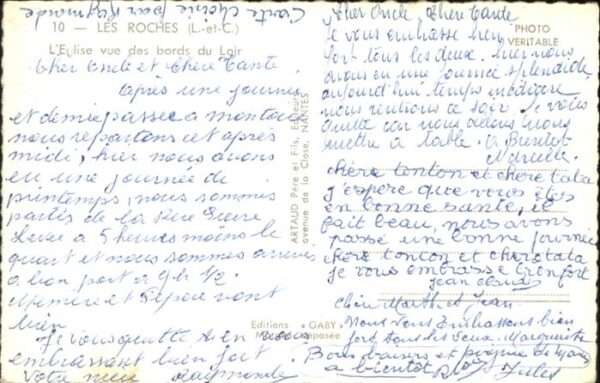 Carte choisie par Raymonde
10 - LES ROCHES (L.-et-C.)
L'Eglise vue des bords du Loir
PHOTO
VERITABLE
Cher Oncle et Chère Tante.
Après une journée
et demie passée a
nous repartons cet après
midi, hier nous avons
eu une journée de
printemps, nous sommes
partis de la
5 heures moins le
quart et nous sommes arrivés
a bon port a 9h 1/2
Mémère et Pépère vont
bien
Je vous quitte
embrassant bien fort.
Votre nièce Raymonde
ARTAUD Père et Fils, Editeurs
avenue de la Close, NANTES
Editions "GABY"
Cher Oncle, Chère Tante
Je vous embrasse bien
fort tous les deux. hier nous
avons eu une journée splendide
aujourd'hui temps médiocre
nous rentrons ce soir. Je vous
quitte car nous allons nous
mettre à table. a Bientôt
chère tonton et chère tata
j'espère que vous êtes
en bonne santé, il
fait beau, nous avons
passé une bonne journée
chère tonton et chère tata
je vous embrasse bien fort
jean claude
Chère Marthe et Jean
Nous vous embrassons bien
fort tous les deux. Marguerite
Bons baisers et
a bientôt Jules